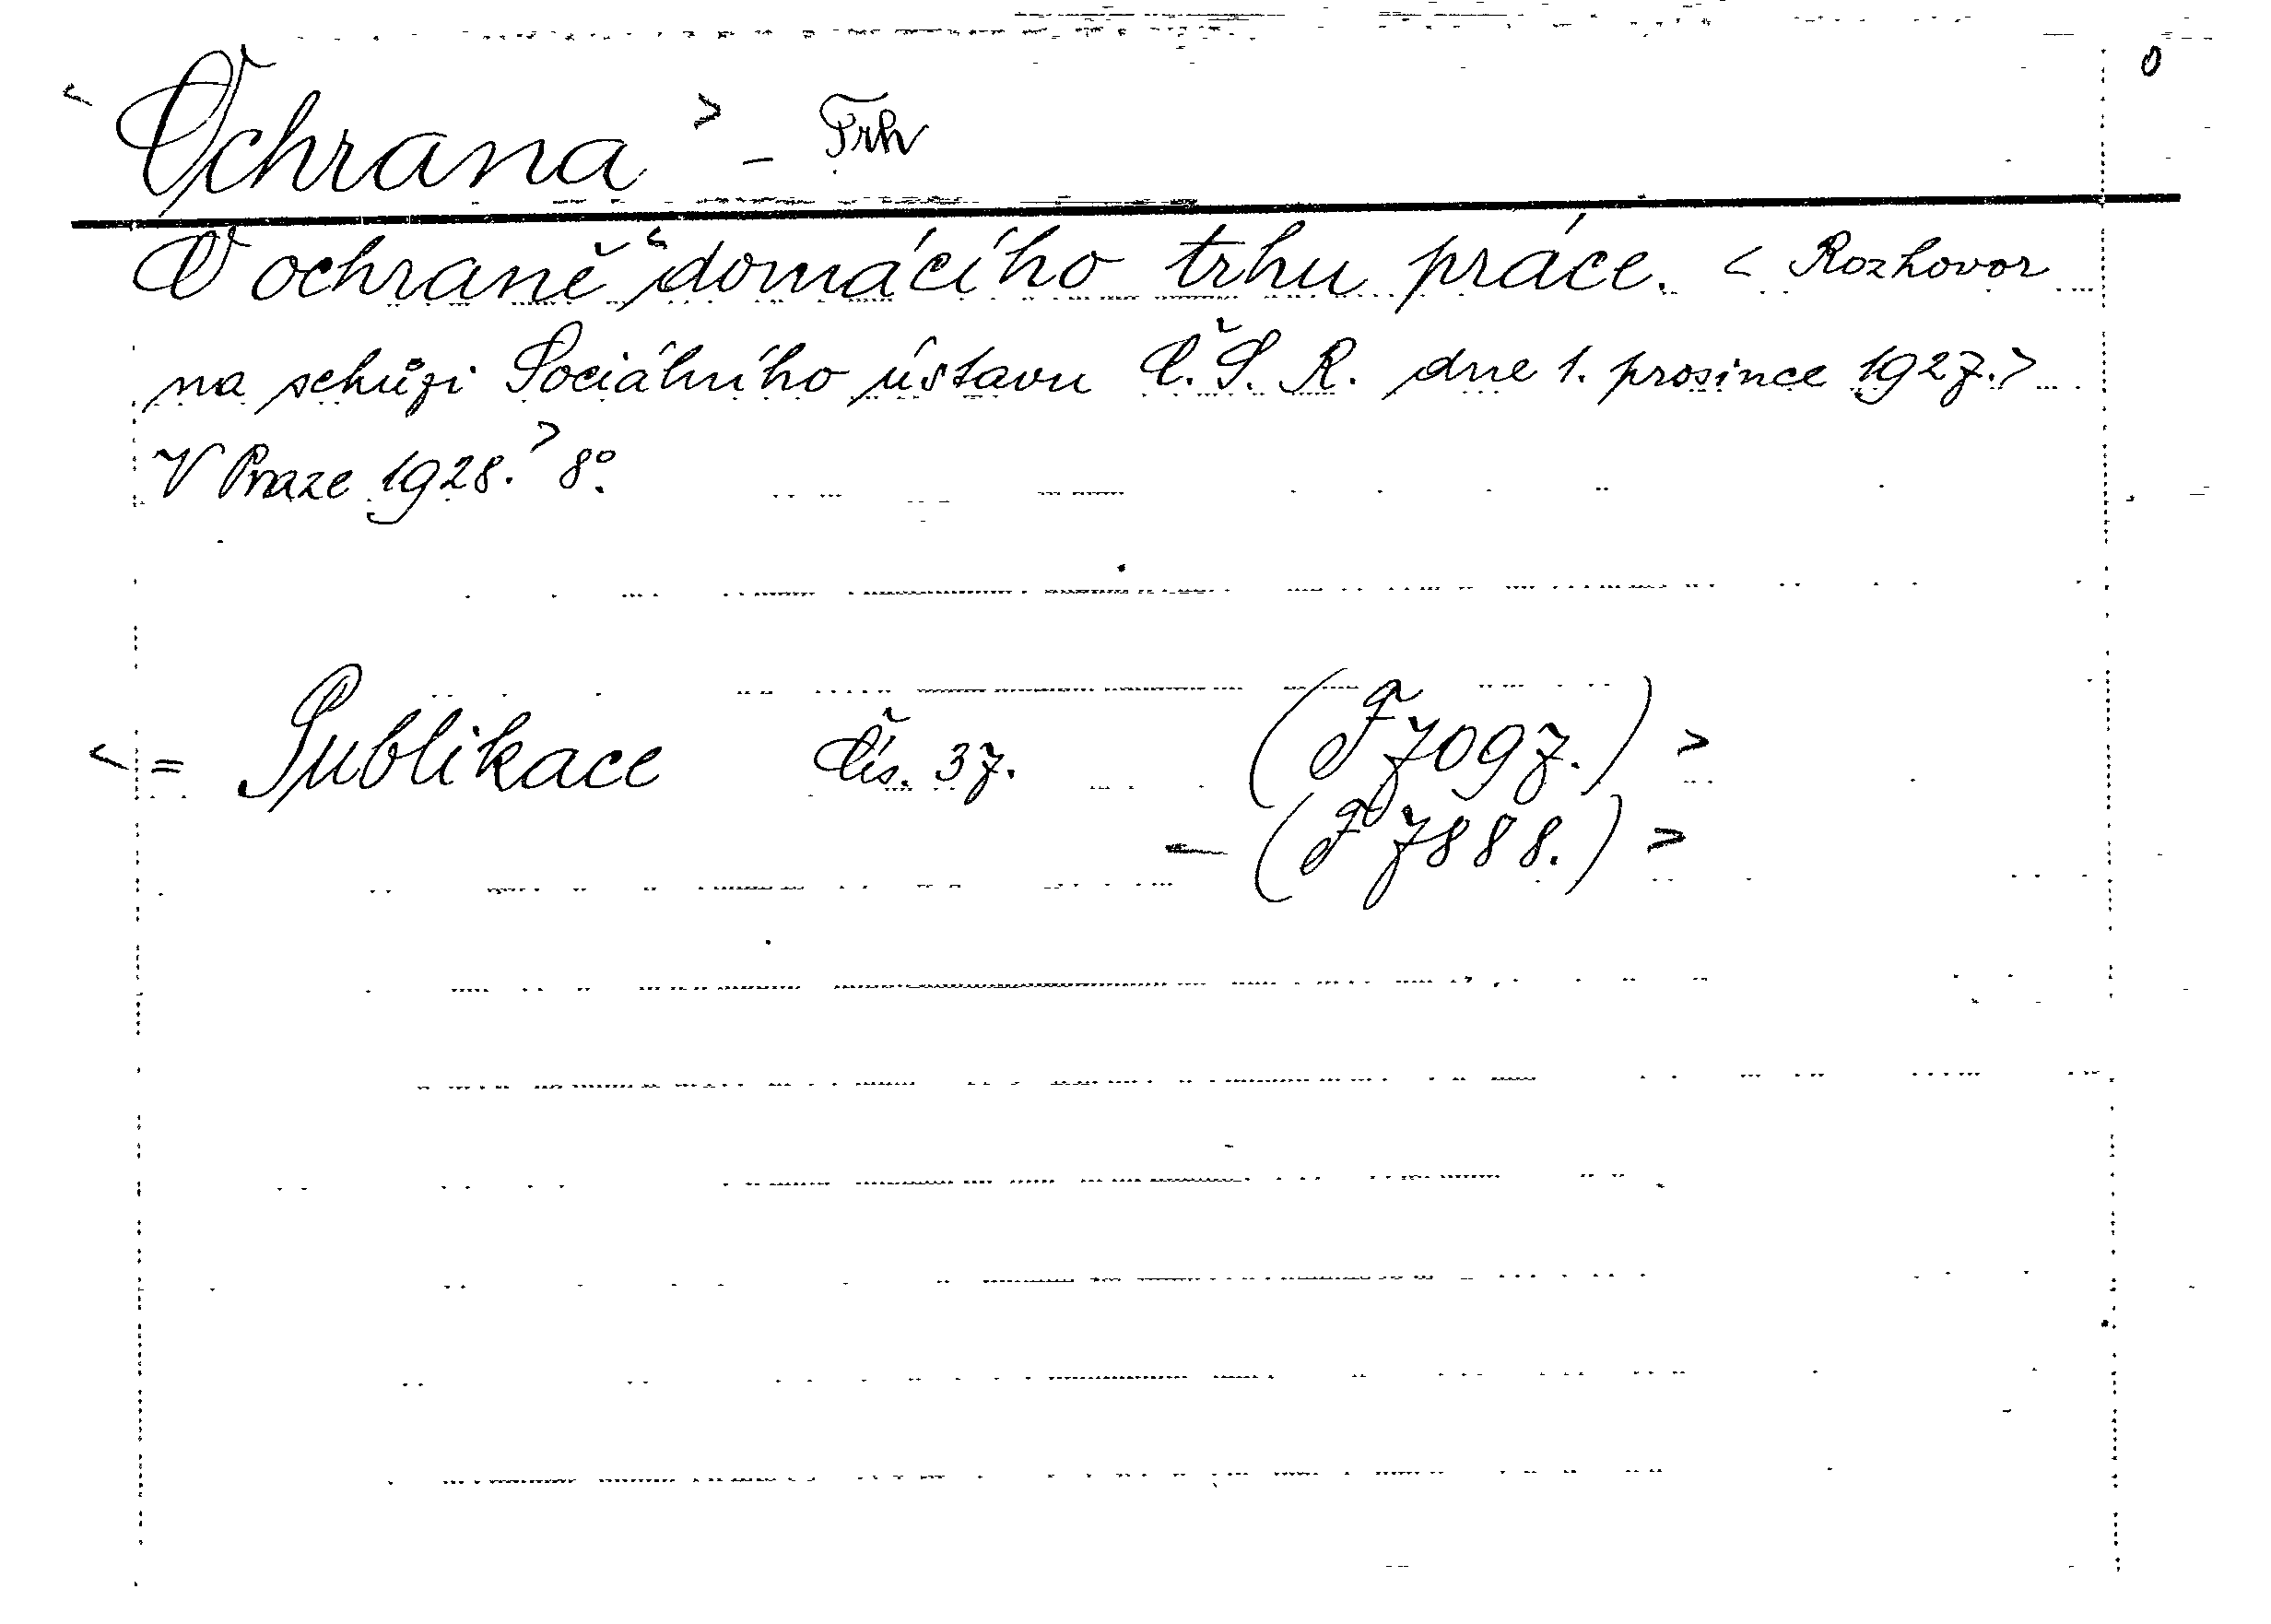 < Ochrana > - Trh 0
O ochraně < domácího trhu práce. < Rozhovor
na schůzi Sociálního ústavu Č.S.R. dne 1. prosince 1927. >
V Praze 1928. > 8°.
< = Publikace čís. 37. (F 7097.) >
- (F 7888.) >